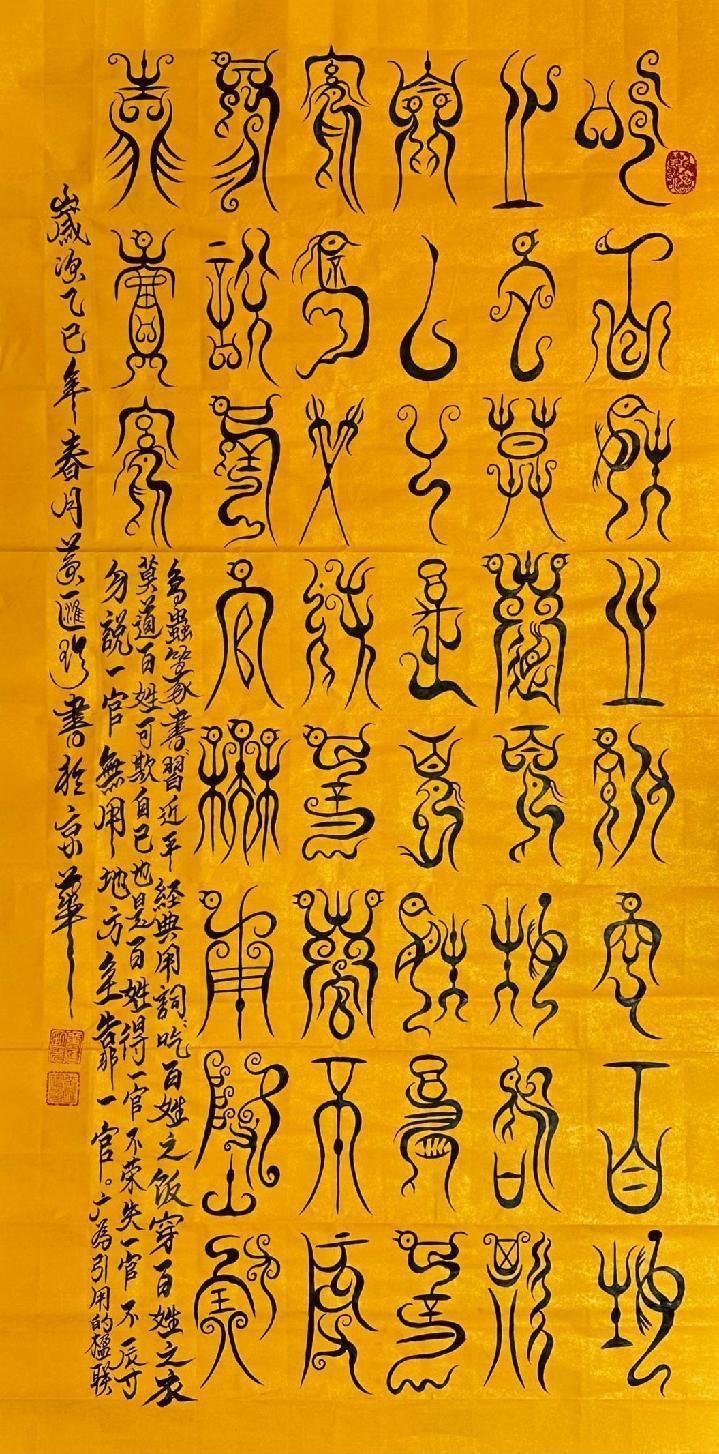 吃百姓之飯穿百姓
之衣莫道百姓可欺
自己也是百姓得一
官不榮失一官不辱
勿説一官無用地方
鸟蟲篆書"習近平經典用詞"吃百姓之饭穿百姓之衣
莫道百姓可欺自己也是百姓得一官不荣失一官不辱
勿説一官無用地方全靠一官。广為引用的楹联
歲次乙巳年春月黃匯珍書於京華